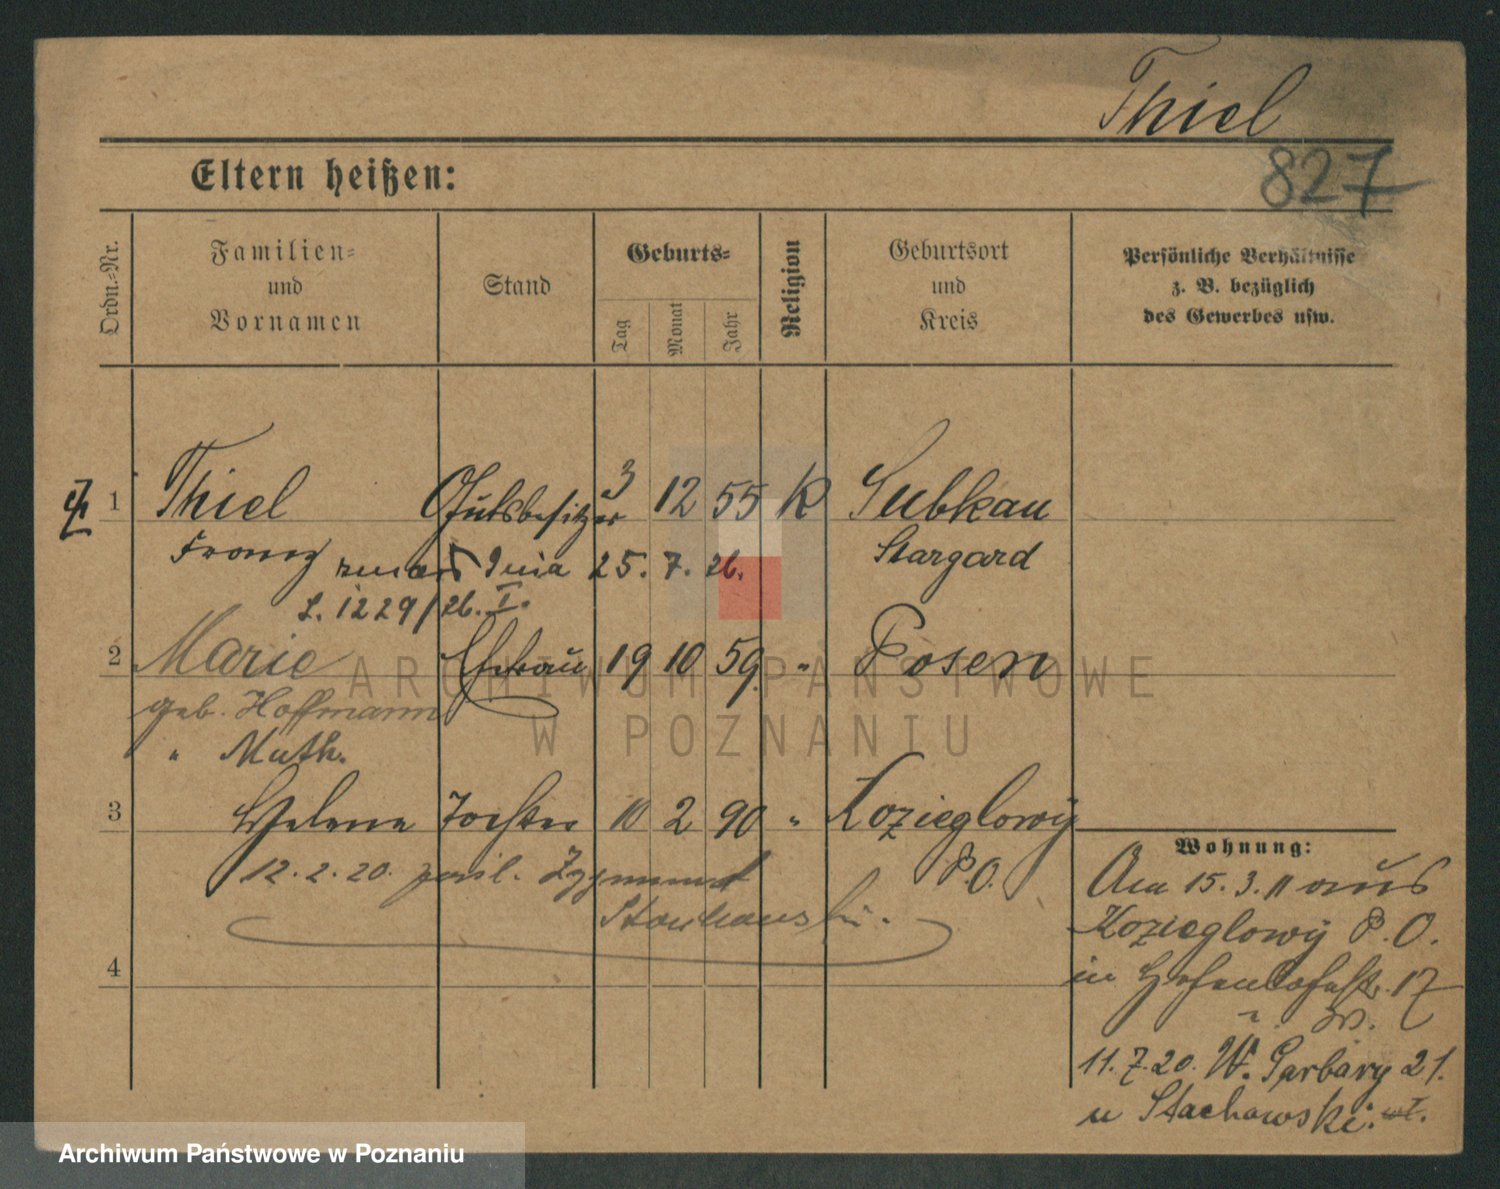 Thiel
827
Eltern heißen:
Ordn.-Nr.
Familien-
und
Vornamen
Stand
Geburts-
Tag
Monat
Jahr
Religion
Geburtsort
und
Kreis
Persönliche Verhältnisse
z. B. bezüglich
des Gewerbes usw.
1 Thiel Gutsbesitzer 3 12 55 K Subkau
Franz zmarł dnia 25. 7. 26. Stargard
L. 1229/26. I.
2 Marie Ehefrau 19 10 59. " Posen
geb. Hoffmann
" Muth.
3 Helene Tochter 10 2 90 " Kozieglowy
P.O.
12. 2. 20. Zygmunt
4
Wohnung:
Am 15. 3. 11 aus
Kozieglowy P. O.
in Hohenlohestr. 17
11. 7. 20. W. Garbary 21.
u Stachowski.
ARCHIWUM PAŃSTWOWE
W POZNANIU
Archiwum Państwowe w Poznaniu